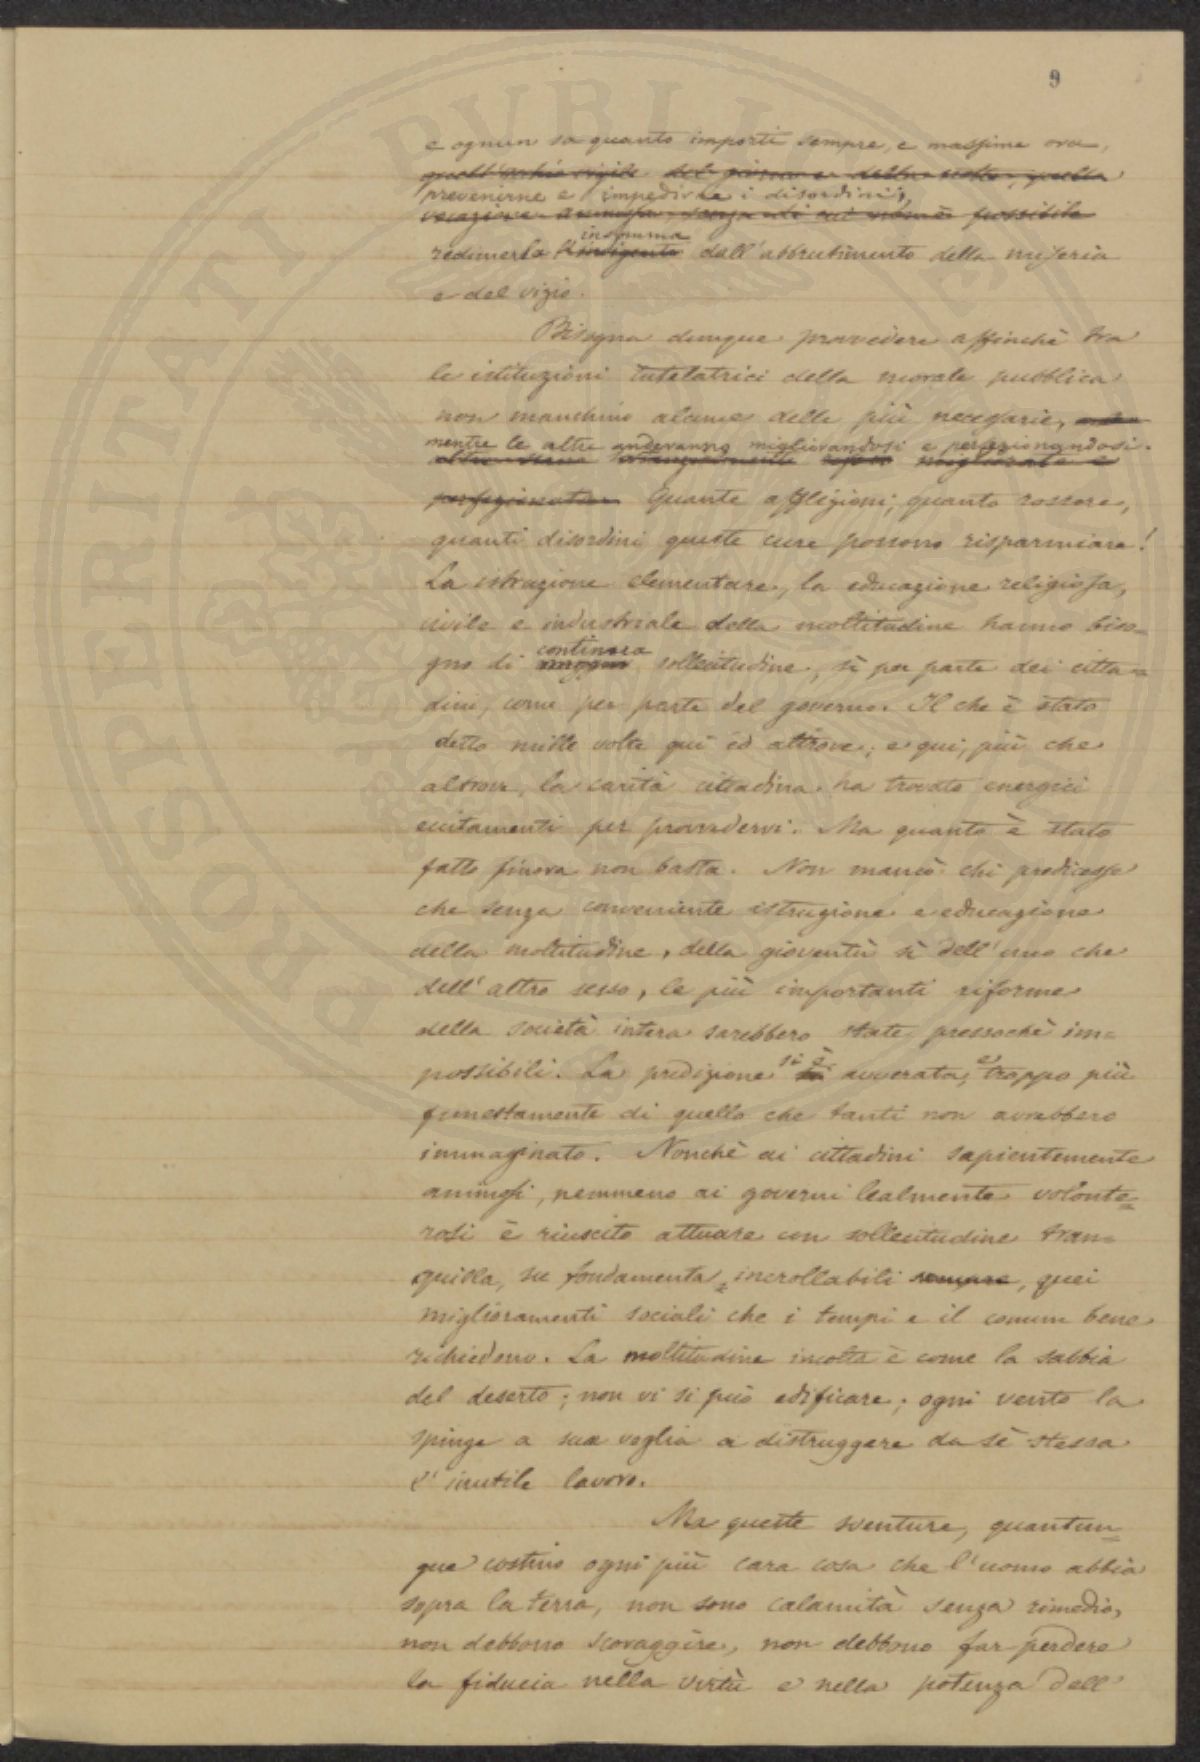 9
e ognun sa quanto importi sempre, e massime ora,
quell'occhio vigile del giorno e della notte, quella
prevenirne e impedirne i disordini,
vocazione animosa, senza di cui non è possibile
insomma
redimerla l'indigente dall'abbrutimento della miseria
e del vizio.
Bisogna dunque provvedere affinchè tra
le istituzioni tutelatrici della morale pubblica
non manchino alcune delle più necessarie,
mentre le altre anderanno migliorandosi e perfezionandosi.
altre migliorate e
perfezionate. Quante afflizioni, quanto rossore,
quanti disordini queste cure possono risparmiare!
La istruzione elementare, la educazione religiosa,
civile e industriale della moltitudine hanno biso=
continova
gno di maggior sollecitudine, sì per parte dei citta=
dini, come per parte del governo. Il che è stato
detto mille volte qui ed altrove; e qui, più che
altrove, la carità cittadina ha trovato energici
eccitamenti per provvedervi. Ma quanto è stato
fatto finora non basta. Non mancò chi predicesse
che senza conveniente istruzione e educazione
della moltitudine, della gioventù sì dell'uno che
dell'altro sesso, le più importanti riforme
della società intera sarebbero state pressochè im=
possibili. La predizione si è avverata, e troppo più
funestamente di quello che tanti non avrebbero
immaginato. Nonchè ai cittadini sapientemente
animosi, nemmeno ai governi lealmente volonte=
rosi è riuscito attuare con sollecitudine tran=
quilla, su fondamenta incrollabili sempre, quei
miglioramenti sociali che i tempi e il comun bene
richiedono. La moltitudine incolta è come la sabbia
del deserto; non vi si può edificare; ogni vento la
spinge a sua voglia a distruggere da sè stessa
l'inutile lavoro.
Ma queste sventure, quantun=
que costino ogni più cara cosa che l'uomo abbia
sopra la terra, non sono calamità senza rimedio,
non debbono scoraggire, non debbono far perdere
la fiducia nella virtù e nella potenza dell'